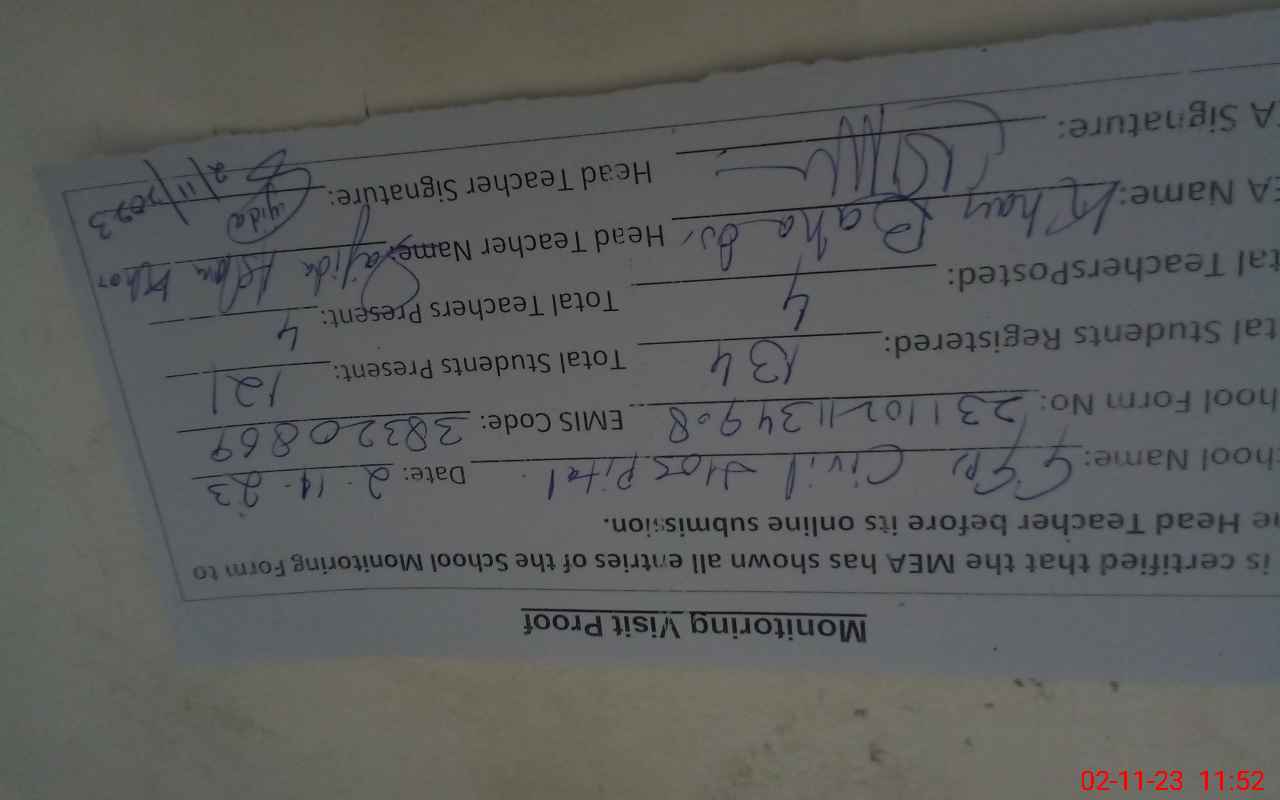 Monitoring Visit Proof
is certified that the MEA has shown all entries of the School Monitoring Form to
e Head Teacher before its online submission.
hool Name: GGPS Civil Hospital Date: 2.11.23
hool Form No: 2311021134908 EMIS Code: 38320869
tal Students Registered: 134 Total Students Present: 121
tal TeachersPosted: 4 Total Teachers Present: 4
EA Name: Khan Head Teacher Name: Sajida
A Signature: Head Teacher Signature: Sajida
2/11/2023
02-11-23 11:52